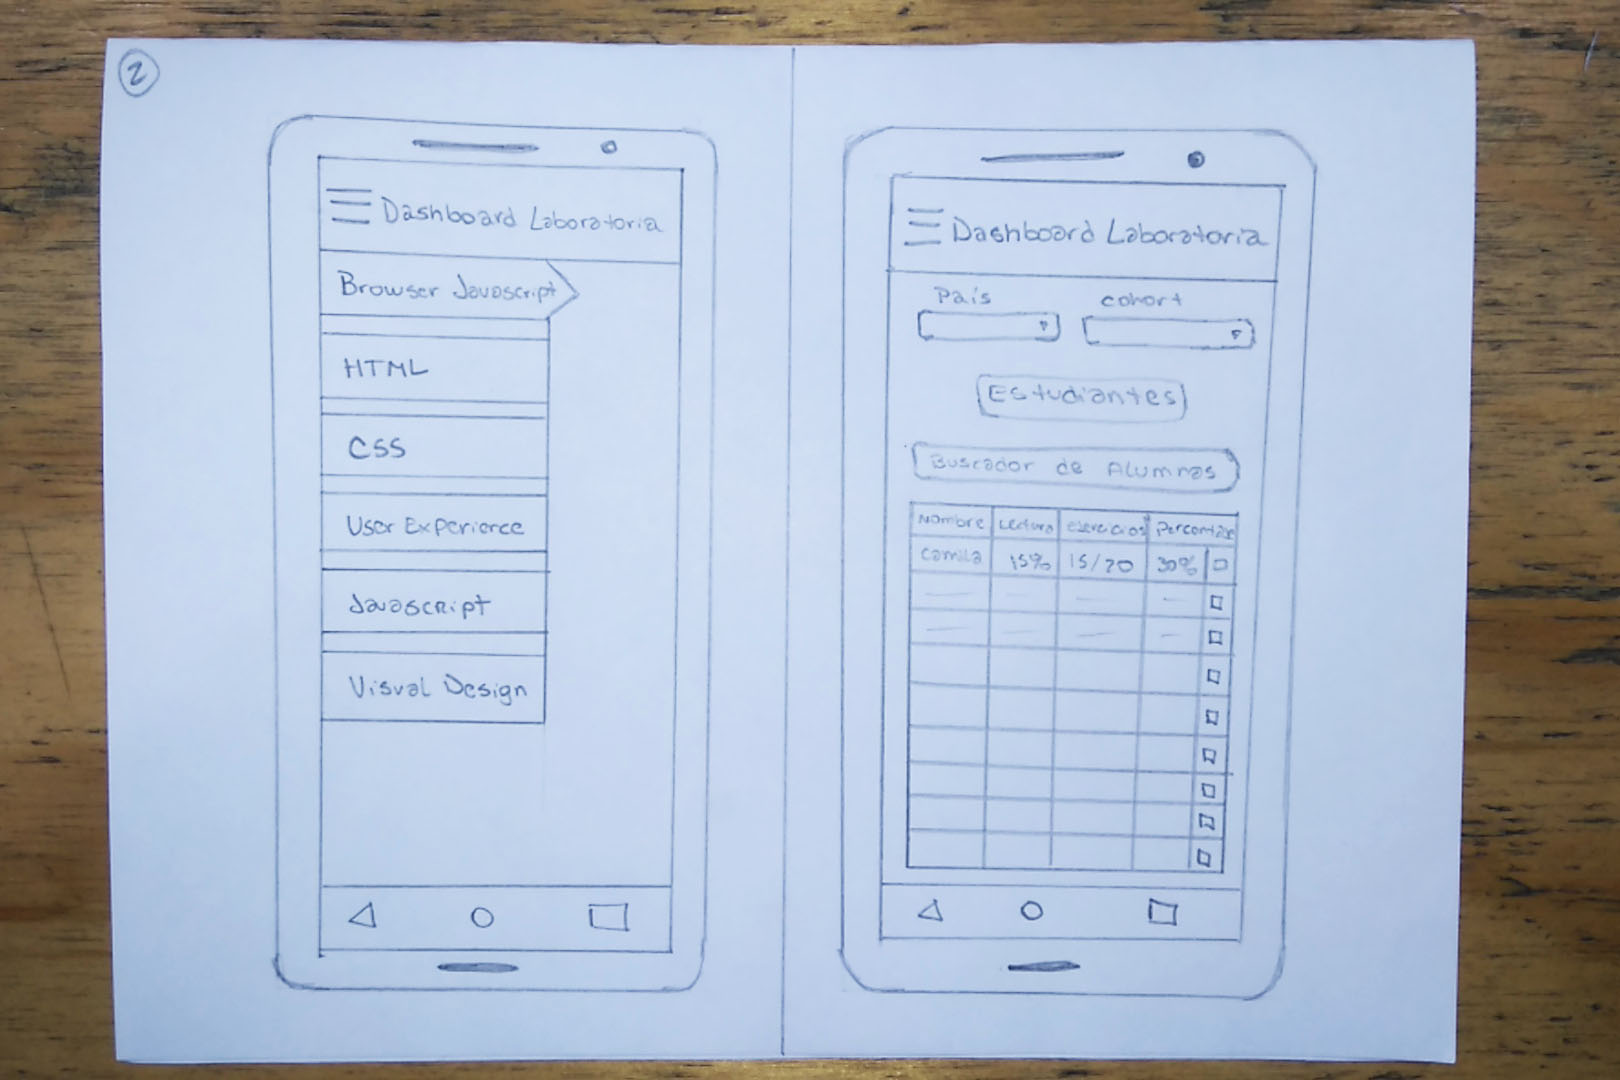 2
Dashboard Laboratoria
Browser Javascript
HTML
CSS
User Experience
Javascript
Visual Design
Dashboard Laboratoria
País cohort
Estudiantes
Buscador de Alumnas
Nombre Lectura ejercicios
Camila 15% 15/20 30%